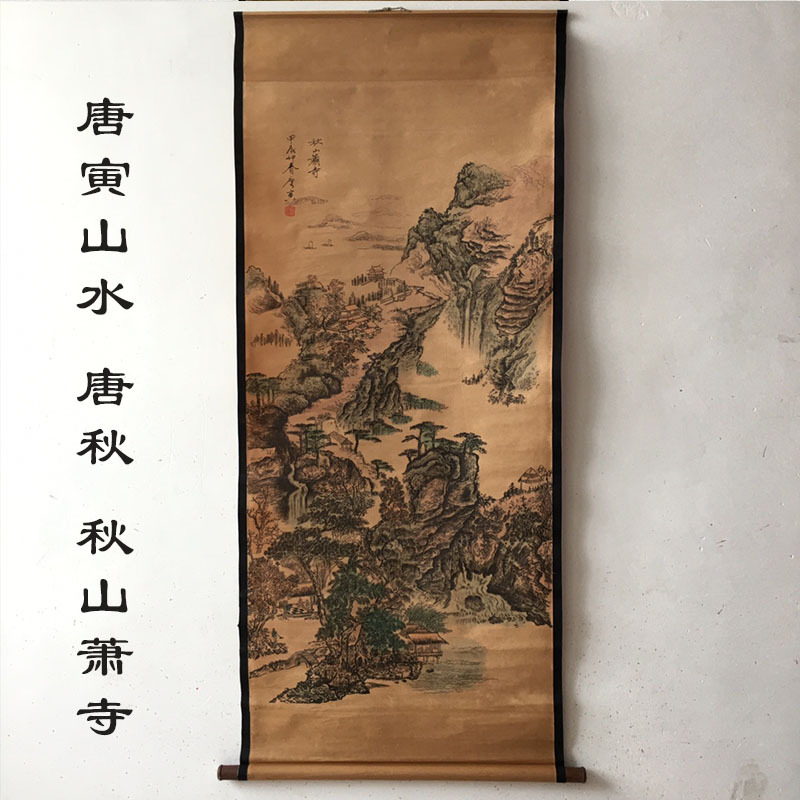 唐寅山水 唐秋 秋山萧寺
秋山蕭寺
甲辰仲春唐寅